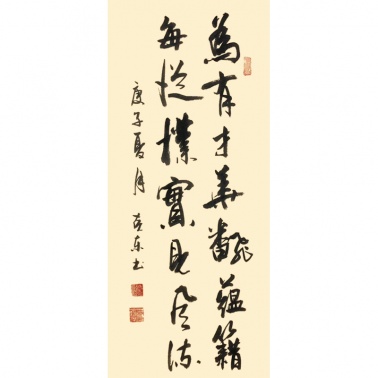 為有才華飜蘊籍
每從樸實見風流
庚子夏月 东书